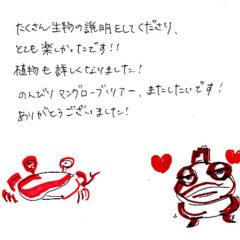 たくさん生物の説明をしてくださり、
とても楽しかったです!!
植物も詳しくなりました!
のんびりマングローブツアー、またしたいです!
ありがとうございました!